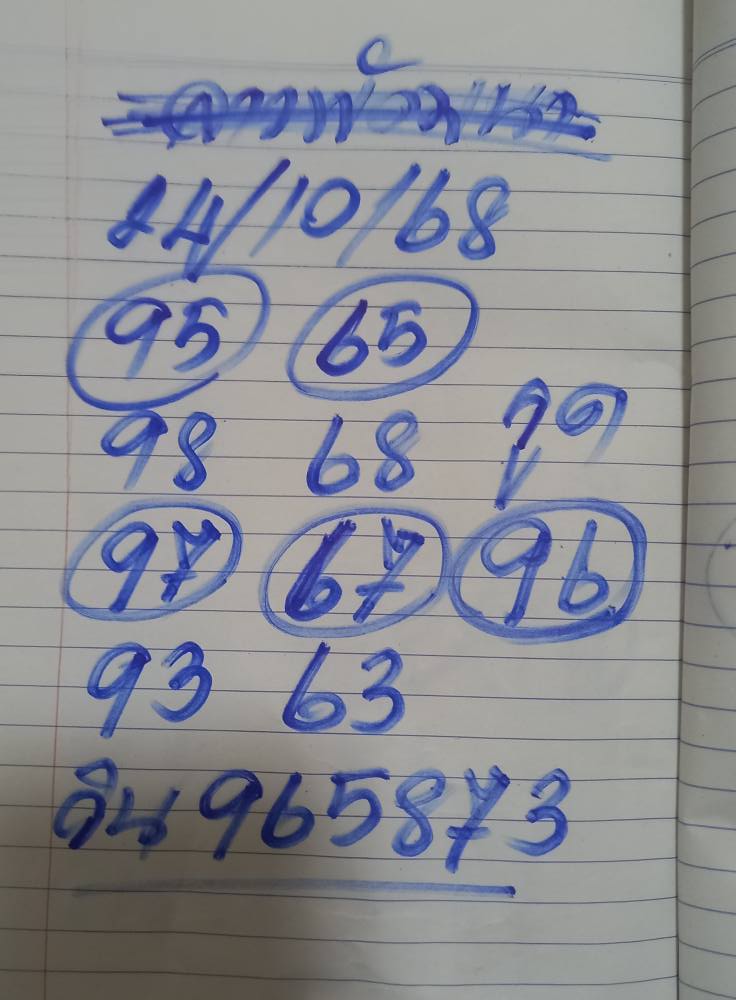 14/10/68
95 65
98 68 รูด
97 67 96
93 63
วิน 965873